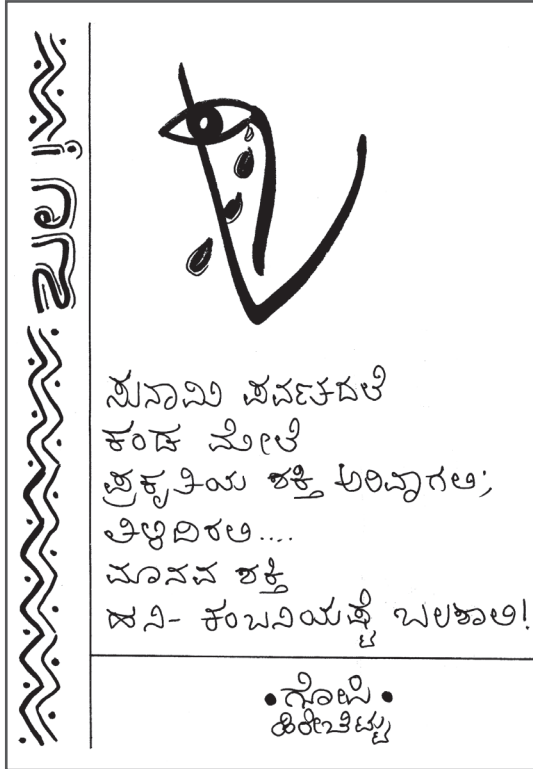 ಸುನಾಮಿ ಪರ್ವತದಲೆ
ಕಂಡ ಮೇಲೆ
ಪ್ರಕೃತಿಯ ಶಕ್ತಿ ಅರಿವಾಗಲಿ;
ತಿಳಿದಿರಲಿ....
ಮಾನವ ಶಕ್ತಿ
ಹನಿ- ಕಂಬನಿಯಷ್ಟೆ ಬಲಶಾಲಿ!
• ಗೋಪಿ •
ಹಿರೇಬೆಟ್ಟು